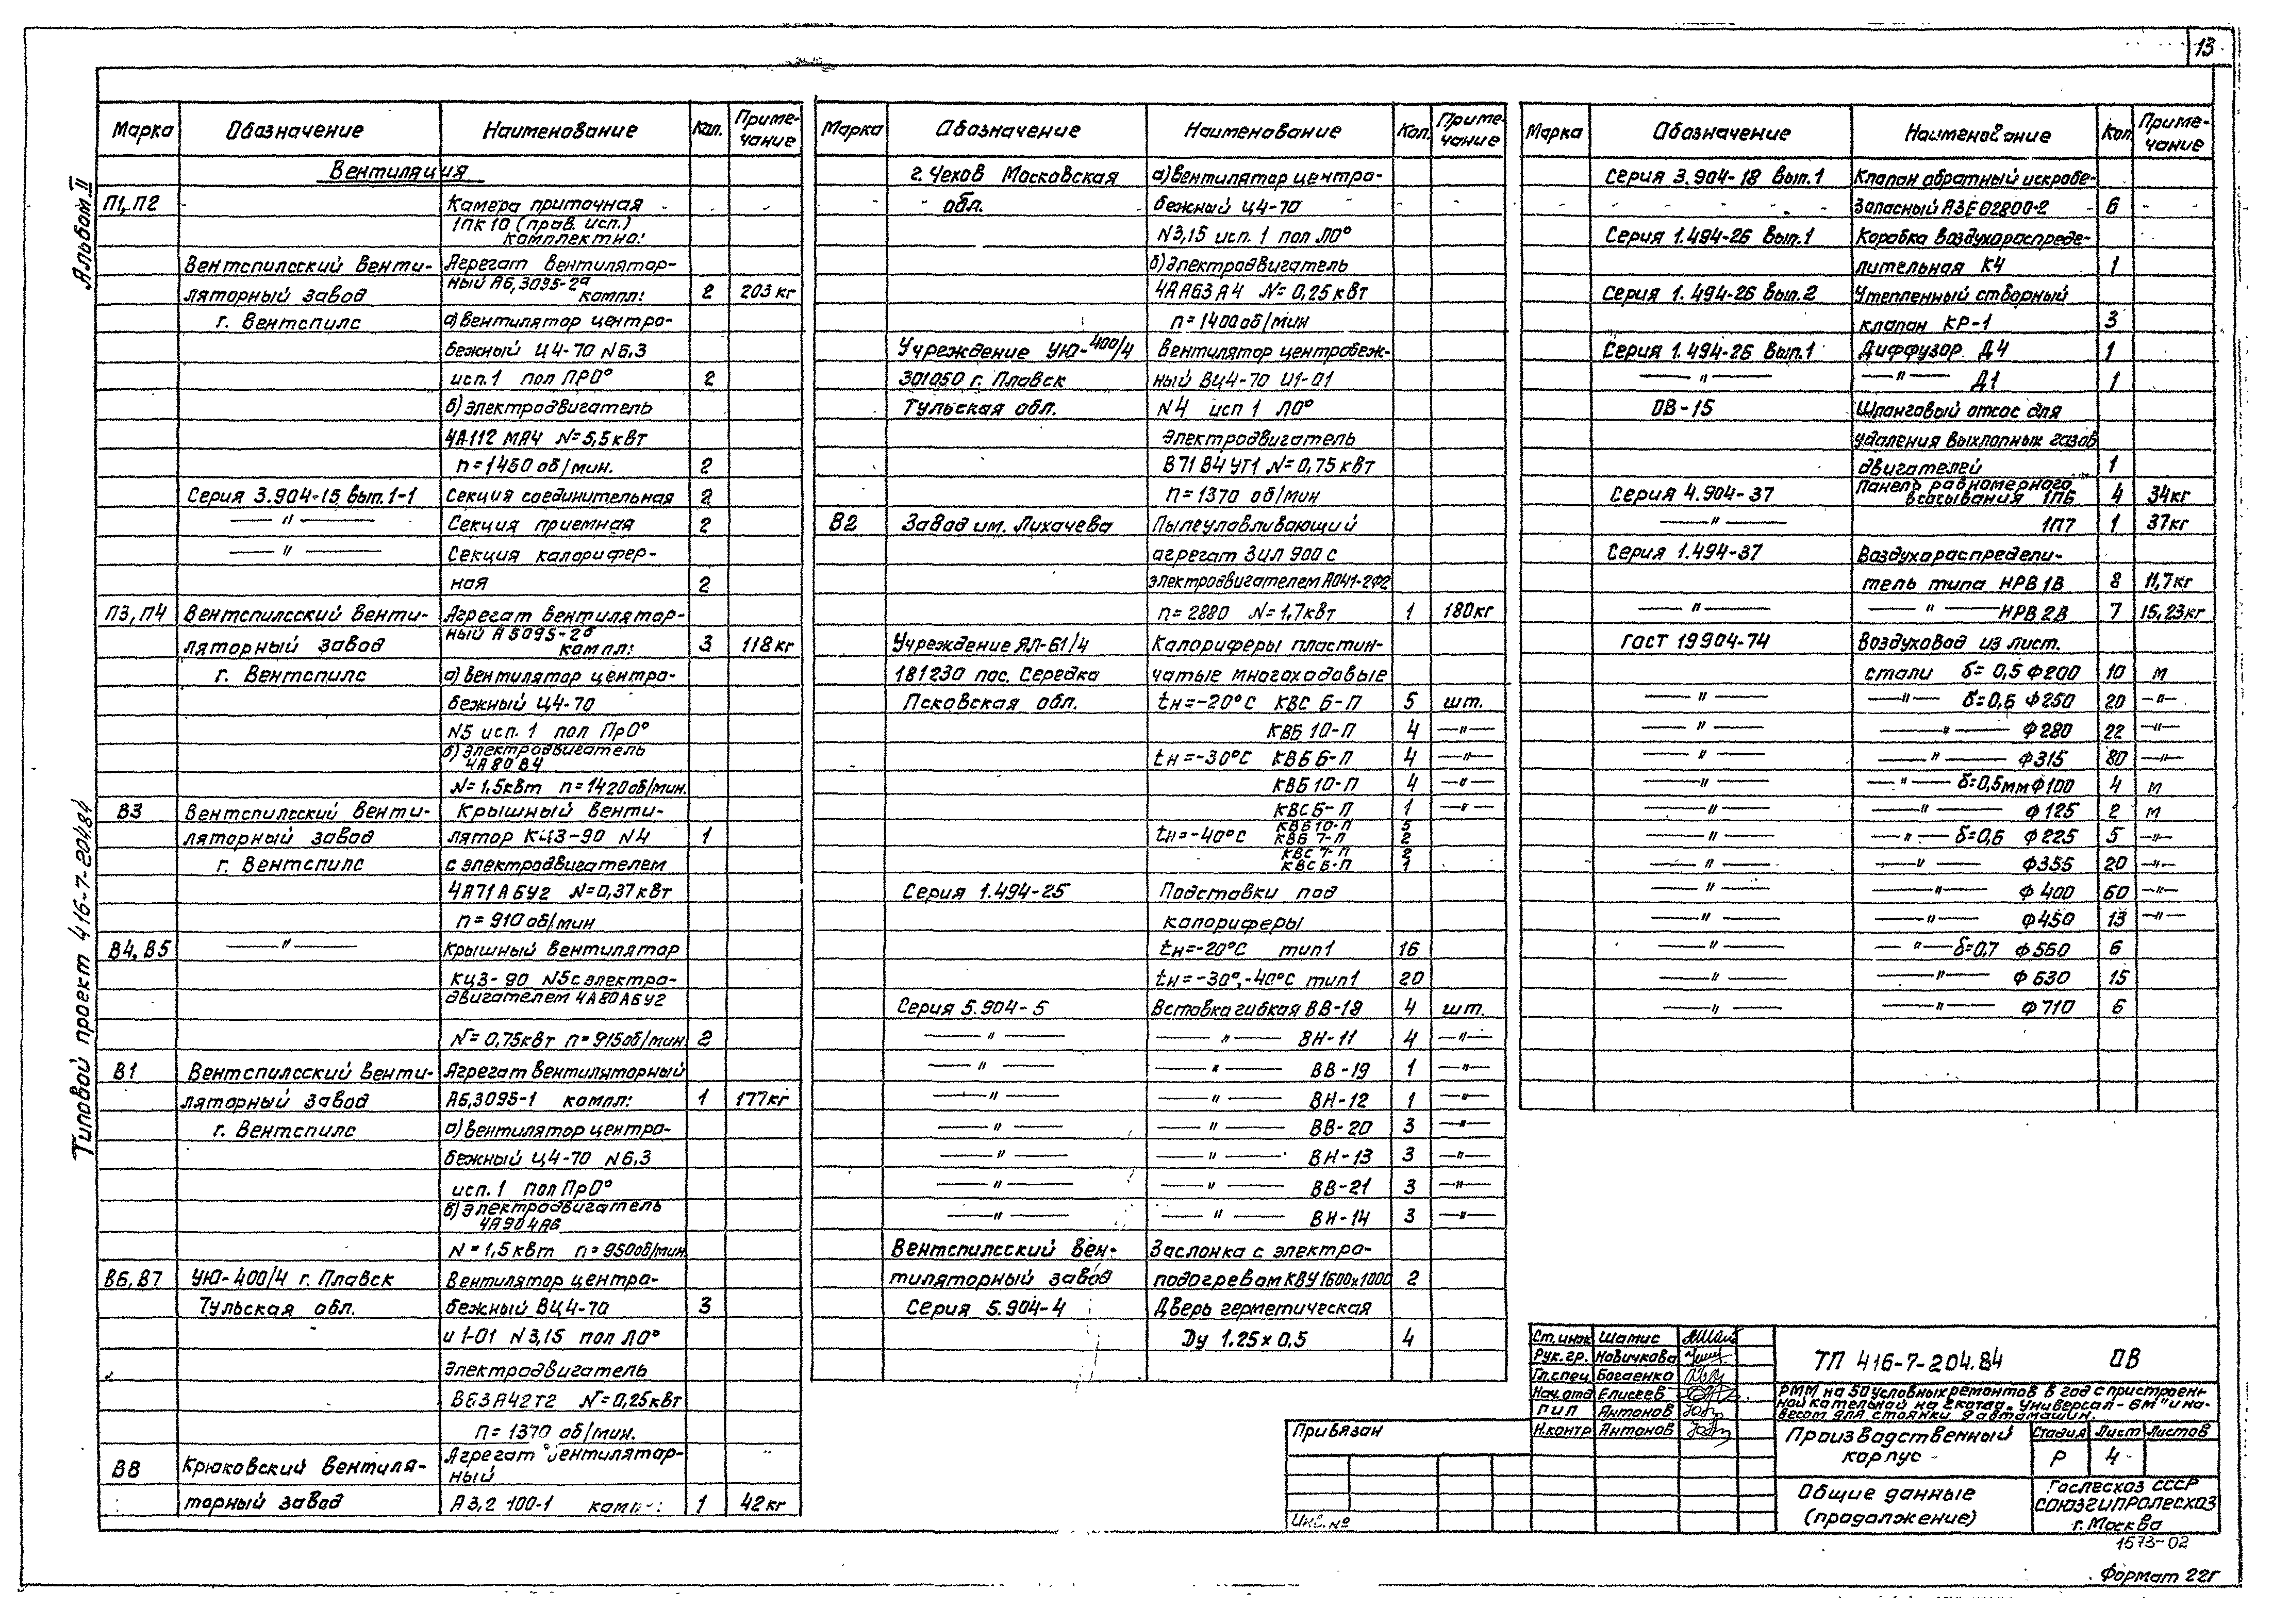 13
Альбом II
Типовой проект 416-7-204.84
Марка Обозначение Наименование Кол. Приме-
чание
Вентиляция
П1, П2 Камера приточная
1ПК10 (прав. исп.)
комплектно:
Вентспилсский венти- Агрегат вентилятор-
ляторный завод ный А6,3095-2а компл: 2 203 кг
г. Вентспилс а) вентилятор центро-
бежный Ц4-70 N6,3
исп. 1 пол ПР0° 2
б) электродвигатель
4А112 МА4 N=5,5 кВт
n=1450 об/мин. 2
Серия 3.904-15 вып. 1-1 Секция соединительная 2
—— " —— Секция приемная 2
—— " —— Секция калорифер-
ная 2
П3, П4 Вентспилсский венти- Агрегат вентилятор-
ляторный завод ный А5095-2б компл: 3 118 кг
г. Вентспилс а) вентилятор центро-
бежный Ц4-70
N5 исп. 1 пол Пр0°
б) электродвигатель
4А80В4
N=1,5 кВт n=1420 об/мин.
В3 Вентспилсский венти- Крышный венти-
ляторный завод лятор КЦ3-90 N4 1
г. Вентспилс с электродвигателем
4А71А6У2 N=0,37 кВт
n=910 об/мин
В4, В5 —— " —— Крышный вентилятор
КЦ3-90 N5 с электро-
двигателем 4А80А6У2
N=0,75 кВт n=915 об/мин 2
В1 Вентспилсский венти- Агрегат вентиляторный
ляторный завод А6,3095-1 компл: 1 177 кг
г. Вентспилс а) вентилятор центро-
бежный Ц4-70 N6,3
исп. 1 пол Пр0°
в) электродвигатель
N=1,5 кВт n=950 об/мин
В6, В7 УЮ-400/4 г. Плавск Вентилятор центро-
Тульская обл. бежный ВЦ4-70 3
и1-01 N3,15 пол Л0°
Электродвигатель
В63А42Т2 N=0,25 кВт
n=1370 об/мин.
В8 Крюковский вентиля- Агрегат вентилятор-
ный
торный завод А3,2 100-1 1 42 кг
Марка Обозначение Наименование Кол. Приме-
чание
г. Чехов Московская а) вентилятор центро-
обл. бежный Ц4-70
N3,15 исп. 1 пол Л0°
б) электродвигатель
4АА63А4 N=0,25 кВт
n=1400 об/мин
Учреждение УЮ-400/4 Вентилятор центробеж-
301050 г. Плавск ный ВЦ4-70 И1-01
Тульская обл. N4 исп 1 Л0°
Электродвигатель
В71В4УТ1 N=0,75 кВт
n=1370 об/мин
В2 Завод им. Лихачева Пылеулавливающий
агрегат ЗИЛ 900 с
электродвигателем АО41-2Ф2
n=2880 N=1,7 кВт 1 180 кг
Учреждение ЯЛ-61/4 Калориферы пластин-
181230 пос. Середка чатые многоходовые
Псковская обл. tн=-20°С КВС 6-П 5 шт.
КВБ 10-П 4 —"—
tн=-30°С КВБ 6-П 4 —"—
КВБ 10-П 4 —"—
КВС 6-П 1 —"—
КВБ 10-П 5
tн=-40°С КВБ 7-П 2
КВС 7-П 2
КВС 6-П 1
Серия 1.494-25 Подставки под
калориферы
tн=-20°С тип 1 16
tн=-30°,-40°С тип 1 20
Серия 5.904-5 Вставка гибкая ВВ-18 4 шт.
—— " —— —— " —— ВН-11 4 —"—
—— " —— " ВВ-19 1 —"—
—— " —— —— " —— ВН-12 1 —"—
—— " —— —— " —— ВВ-20 3 —"—
—— " —— —— " —— ВН-13 3 —"—
—— " —— —— " —— ВВ-21 3 —"—
—— " —— —— " —— ВН-14 3 —"—
Вентспилсский вен- Заслонка с электро-
тиляторный завод подогревом КВУ 1600х1000 2
Серия 5.904-4 Дверь герметическая
Ду 1.25 х 0,5 4
Марка Обозначение Наименование Кол. Приме-
чание
Серия 3.904-18 вып. 1 Клапан обратный искробе-
зопасный АЗЕ02800-2 6
Серия 1.494-26 вып. 1 Коробка воздухораспреде-
лительная К4 1
Серия 1.494-26 вып. 2 Утепленный створный
клапан КР-1 3
Серия 1.494-26 вып. 1 Диффузор Д4 1
—— " —— —"— Д1 1
ОВ-15 Шланговый отсос для
удаления выхлопных газов
двигателей 1
Серия 4.904-37 Панель равномерного
всасывания 1П6 4 34 кг
—— " —— 1П7 1 37 кг
Серия 1.494-37 Воздухораспредели-
тель типа НРВ 1В 8 11,7 кг
—— " —— —— " —— НРВ 2В 7 15,23 кг
ГОСТ 19904-74 Воздуховод из лист.
стали δ=0,5 Ф200 10 м
—— " —— —"— δ=0,6 Ф250 20 —"—
—— " —— —— " —— Ф280 22 —"—
—— " —— —— " —— Ф315 80 —"—
—— " —— " —— δ=0,5мм Ф100 4 м
—— " —— —— " —— Ф125 2 м
—— " —— — " — δ=0,6 Ф225 5 —"—
—— " —— —— " —— Ф355 20 —"—
—— " —— —— " —— Ф400 60 —"—
—— " —— —— " —— Ф450 13 —"—
—— " —— — " — δ=0,7 Ф560 6
—— " —— —— " —— Ф630 15
—— " —— —— " —— Ф710 6
Ст. инж Шамис
Рук. гр. Новичкова
Гл. спец Богаенко
Нач. отд Елисеев
ГИП Антонов
Н.контр Антонов
ТП 416-7-204.84 ОВ
РММ на 50 условных ремонтов в год с пристроен-
ной котельной на 2 котла „Универсал-6М" и на-
весом для стоянки автомашин.
Производственный
корпус
Стадия Лист Листов
Р 4
Общие данные
(продолжение)
Гослесхоз СССР
СОЮЗГИПРОЛЕСХОЗ
г. Москва
Привязан
Инв. №
1573-02
Формат 22г